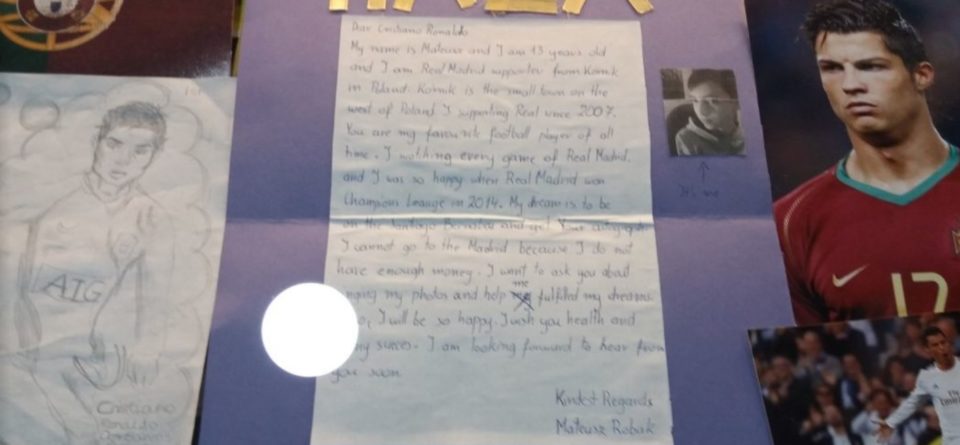 Dear Cristiano Ronaldo
My name is Mateusz and I am 13 years old
and I am Real Madrid supporter from Kórnik
in Poland. Kórnik is the small town on the
west of Poland. I supporting Real since 2007.
You are my favourite football player of all
time. I watching every game of Real Madrid.
and I was so happy when Real Madrid won
Champions Leauge in 2014. My dream is to be
on the Santiago Bernabeu and get Your autograph.
I cannot go to the Madrid because I do not
have enough money. I want to ask you about
my photos and help me fulfilled my dreams.
I will be so happy. I wish you health and
succes. I am looking forward to hear from
you soon.
Kindest Regards
Mateusz Robak
It's me
AIG
Cristiano
Ronaldo
17